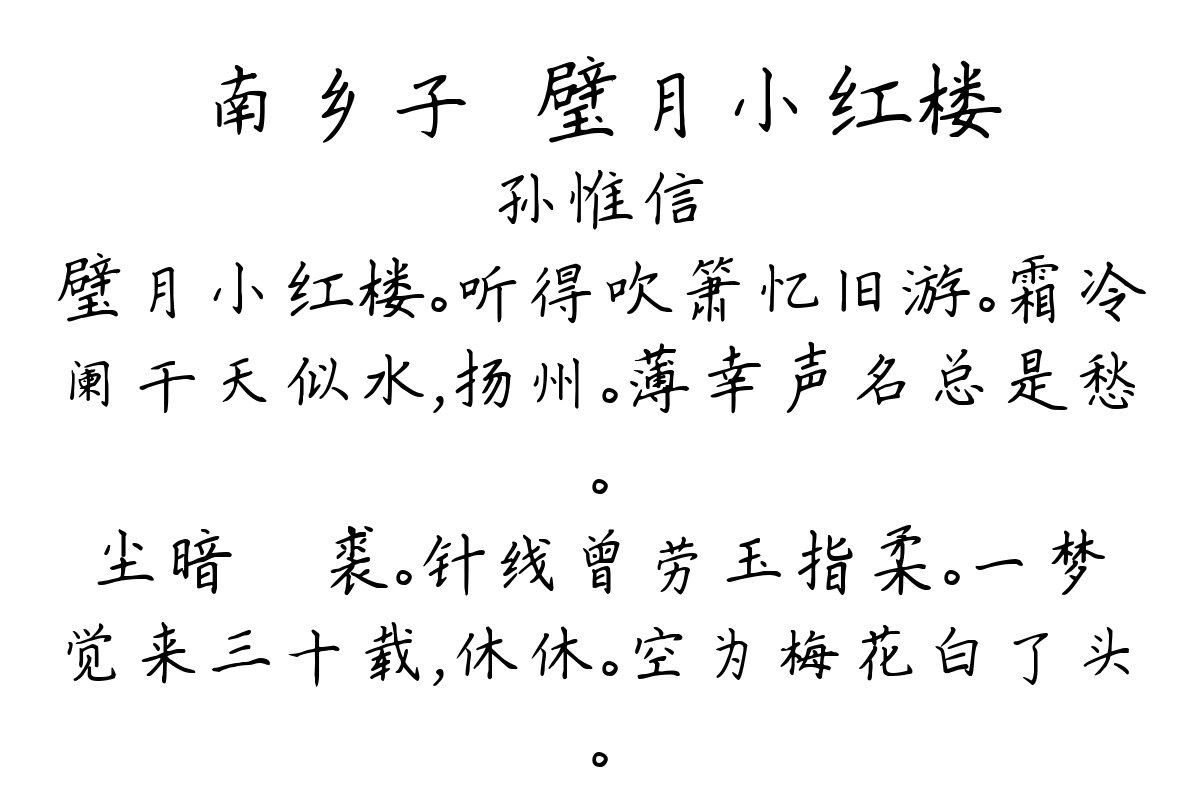 南乡子 璧月小红楼
孙惟信
璧月小红楼。听得吹箫忆旧游。霜冷
阑干天似水,扬州。薄幸声名总是愁
。
尘暗 裘。针线曾劳玉指柔。一梦
觉来三十载,休休。空为梅花白了头
。